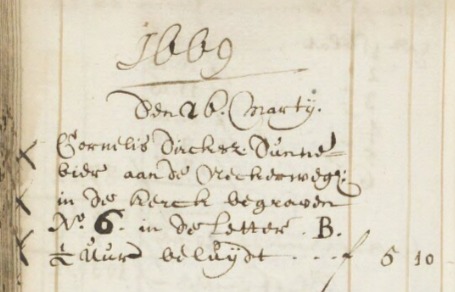 1669
Den 26. Martij.
Cornelis Dircksz: Dunne=
bier aan de Neckerwegh:
in de Kerck begraven
N⁰. 6. in de Letter. B.
½ Uur beluÿdt . . . f 5 10